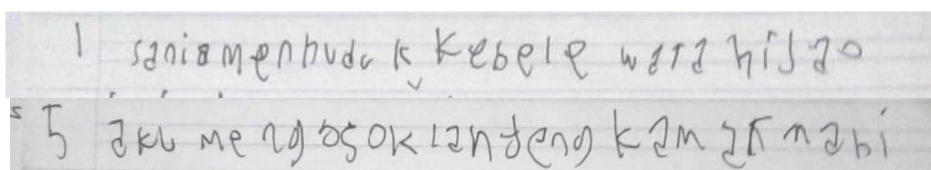 1 saniamenbudak kebele wara hijao
5 aku mengosok lanteng kamar mabi